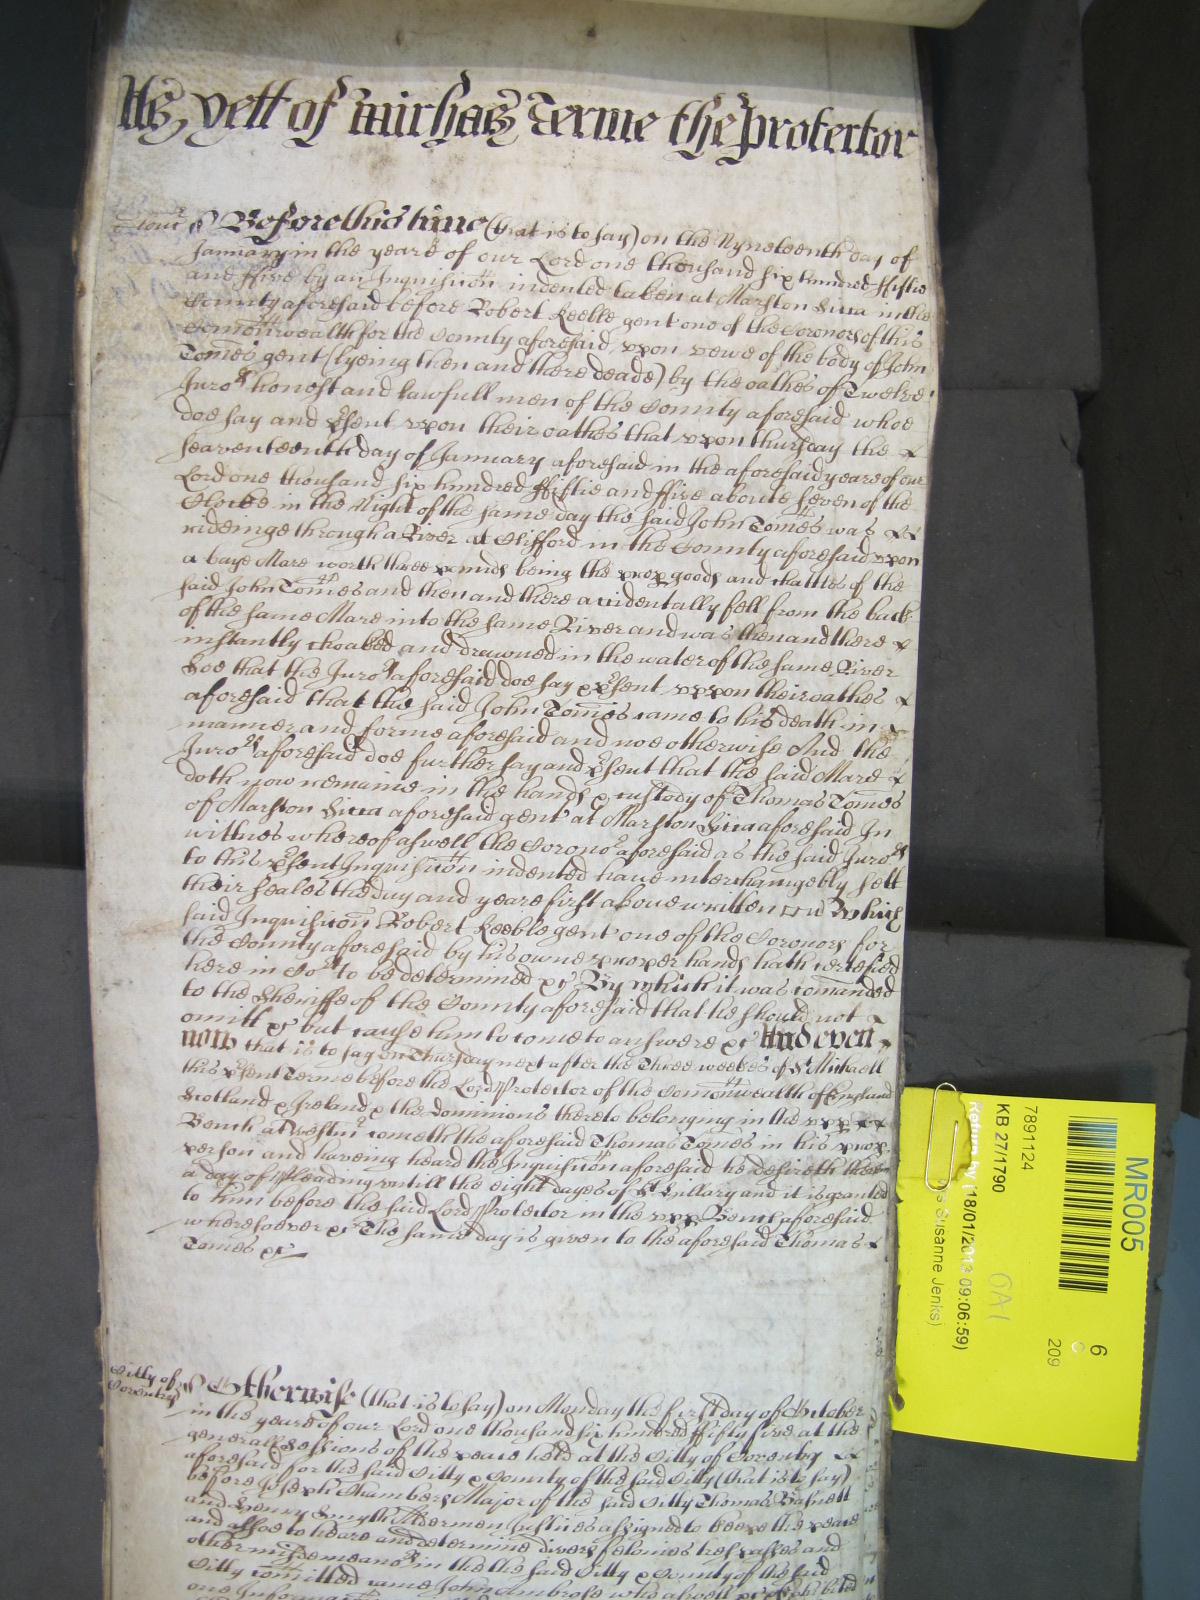 As yett of Michas Terme the Protector
Glouc ss Before this time (that is to say) on the Nyneteenth day of
January in the yeare of our Lord one thousand six hundred ffiftie
and ffive by an Inquisicon indented taken at Marston Sicca in the
County aforesaid before Robert Keeble gent one of the Coroners of this
Comonwealth for the County aforesaid upon vewe of the body of John
Tomes gent (lyeing then and there deade) by the oathes of Twelve
Juro's honest and lawfull men of the County aforesaid whoe
doe say and psent upon their oathes that upon thursday the
seaventeenth day of January aforesaid in the aforesaid yeare of our
Lord one thousand six hundred ffiftie and ffive aboute seven of the
Clocke in the Night of the same day the said John Tomes was
rideinge through a River at Clifford in the County aforesaid upon
a baye Mare worth three pounds being the prop goods and chattles of the
said John Tomes and then and there accidentally fell from the back
of the same Mare into the same River and was then and there
instantly choaked and drowned in the water of the same River
Soe that the Juro's aforesaid doe say & psent uppon their oathes
aforesaid that the said John Tomes came to his death in
manner and forme aforesaid and noe otherwise And the
Juro's aforesaid doe further say and psent that the said Mare
doth now remaine in the hands & custody of Thomas Tomes
of Marston Sicca aforesaid gent at Marston Sicca aforesaid In
wittnes whereof aswell the Corono' aforesaid as the said Juro's
to this psent Inquisicon indented have interchangebly sett
their seales the day and yeare first above written Which
said Inquisicon Robert Keeble gent one of the Coroners for
the County aforesaid by his owne proper hands hath certefied
here in Co't to be determined &c By which it was comanded
to the Sheriffe of the County aforesaid that he should not
omitt &c but cause him to come to answere &c And even
now that is to say on Thursday next after the Three weekes of St Michaell
this psent Terme before the Lord Protector of the Comonwealth of England
Scotland & Ireland & the dominions thereto belonging in the upp
Bench at Westm' cometh the aforesaid Thomas Tomes in his prop
person and haveing heard the Inquisicon aforesaid he desireth
a day of Pleading untill the eight dayes of St Hillary and it is granted
to him before the said Lord Protector in the upp Bench aforesaid
wheresoever &c The same day is given to the aforesaid Thomas
Tomes &c
Citty of
Coventry ss Otherwise (that is to say) on Monday the first day of October
in the yeare of our Lord one thousand six hundred ffifty five at the
generall Sessions of the peace held at the Citty of Coventry
aforesaid for the said Citty & County of the said Citty (that is to say)
before Joseph Chambers Major of the said Citty Thomas Basnett
and Henry Smyth Aldermen Justices assigned to keepe the peace
and alsoe to heare and determine divers felonies trespasses and
other misdemeano's in the said Citty & County of the said
Citty comitted came John Ambrose who aswell &c
one Informacon
MR005
7891124
KB 27/1790
Return by (18/01/2013 09:06:59)
Susanne Jenks)
6
209